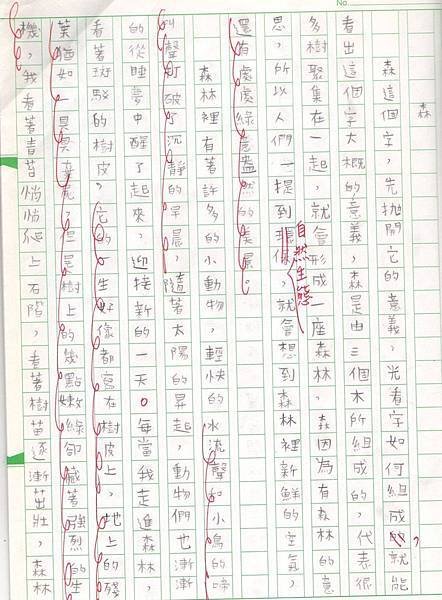 No.
森這個字,先拋開它的意義,光看字如何組成的,就能
看出這個字大概的意義,森是由三個木所組成的,代表很
多樹聚集在一起,就會形成一座森林,森因為有森林的意
思,所以人們一提到,就會想到森林裡新鮮的空氣,
自然生態
還有處處綠意盎然的美景。
森林裡有著許多的小動物,輕快的水流聲和小鳥的啼
叫聲打破了沉靜的早晨,隨著太陽的昇起,動物們也漸漸
的從睡夢中醒了起來,迎接新的一天。每當我走進森林,
看著斑駁的樹皮,它的生好像都寫在樹皮上,地上的殘
葉猶如一具具棄屍,但是樹上的幾點嫩綠卻藏著強烈的生
機,我看著青苔悄悄爬上石階,看著樹苗逐漸茁壯,森林